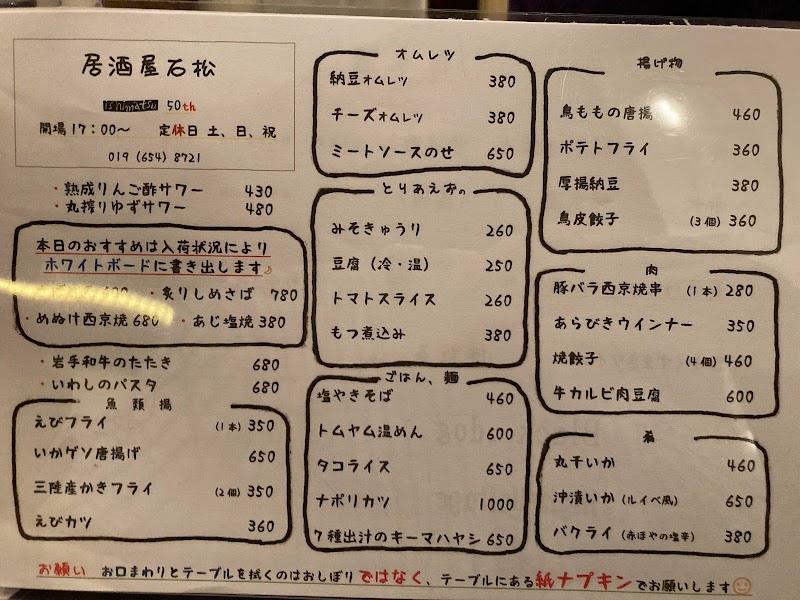 居酒屋石松
Ishimatsu 50th
開場17：00〜 定休日 土、日、祝
019 (654) 8721
・熟成りんご酢サワー 430
・丸搾りゆずサワー 480
本日のおすすめは入荷状況により
ホワイトボードに書き出します♪
・炙りしめさば 780
・めぬけ西京焼 680 ・あじ塩焼 380
・岩手和牛のたたき 680
・いわしのパスタ 680
魚類揚
えびフライ (1本) 350
いかゲソ唐揚げ 650
三陸産かきフライ (2個) 350
えびカツ 360
オムレツ
納豆オムレツ 380
チーズオムレツ 380
ミートソースのせ 650
とりあえず。
みそきゅうり 260
豆腐（冷・温） 250
トマトスライス 260
もつ煮込み 380
ごはん、麺
塩やきそば 460
トムヤム温めん 600
タコライス 650
ナポリカツ 1000
7種出汁のキーマハヤシ 650
揚げ物
鳥ももの唐揚 460
ポテトフライ 360
厚揚納豆 380
鳥皮餃子 (3個) 360
肉
豚バラ西京焼串 (1本) 280
あらびきウインナー 350
焼餃子 (4個) 460
牛カルビ肉豆腐 600
肴
丸干いか 460
沖漬いか (ルイベ風) 650
バクライ (赤ほやの塩辛) 380
お願い お口まわりとテーブルを拭くのはおしぼりではなく、テーブルにある紙ナプキンでお願いします☺